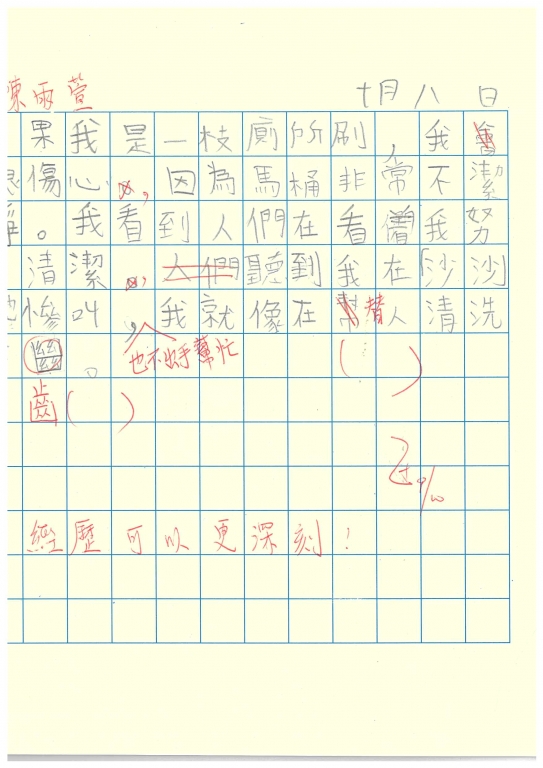 陳雨萱
十月八日
果我是一枝廁所刷,我會
傷心,因為馬桶非常不潔
。我看到人們在看著我努
清潔,人們聽到我在「沙沙
慘叫,我就像在幫替人清洗
也不出手幫忙
。( )
齒( )
經歷可以更深刻!